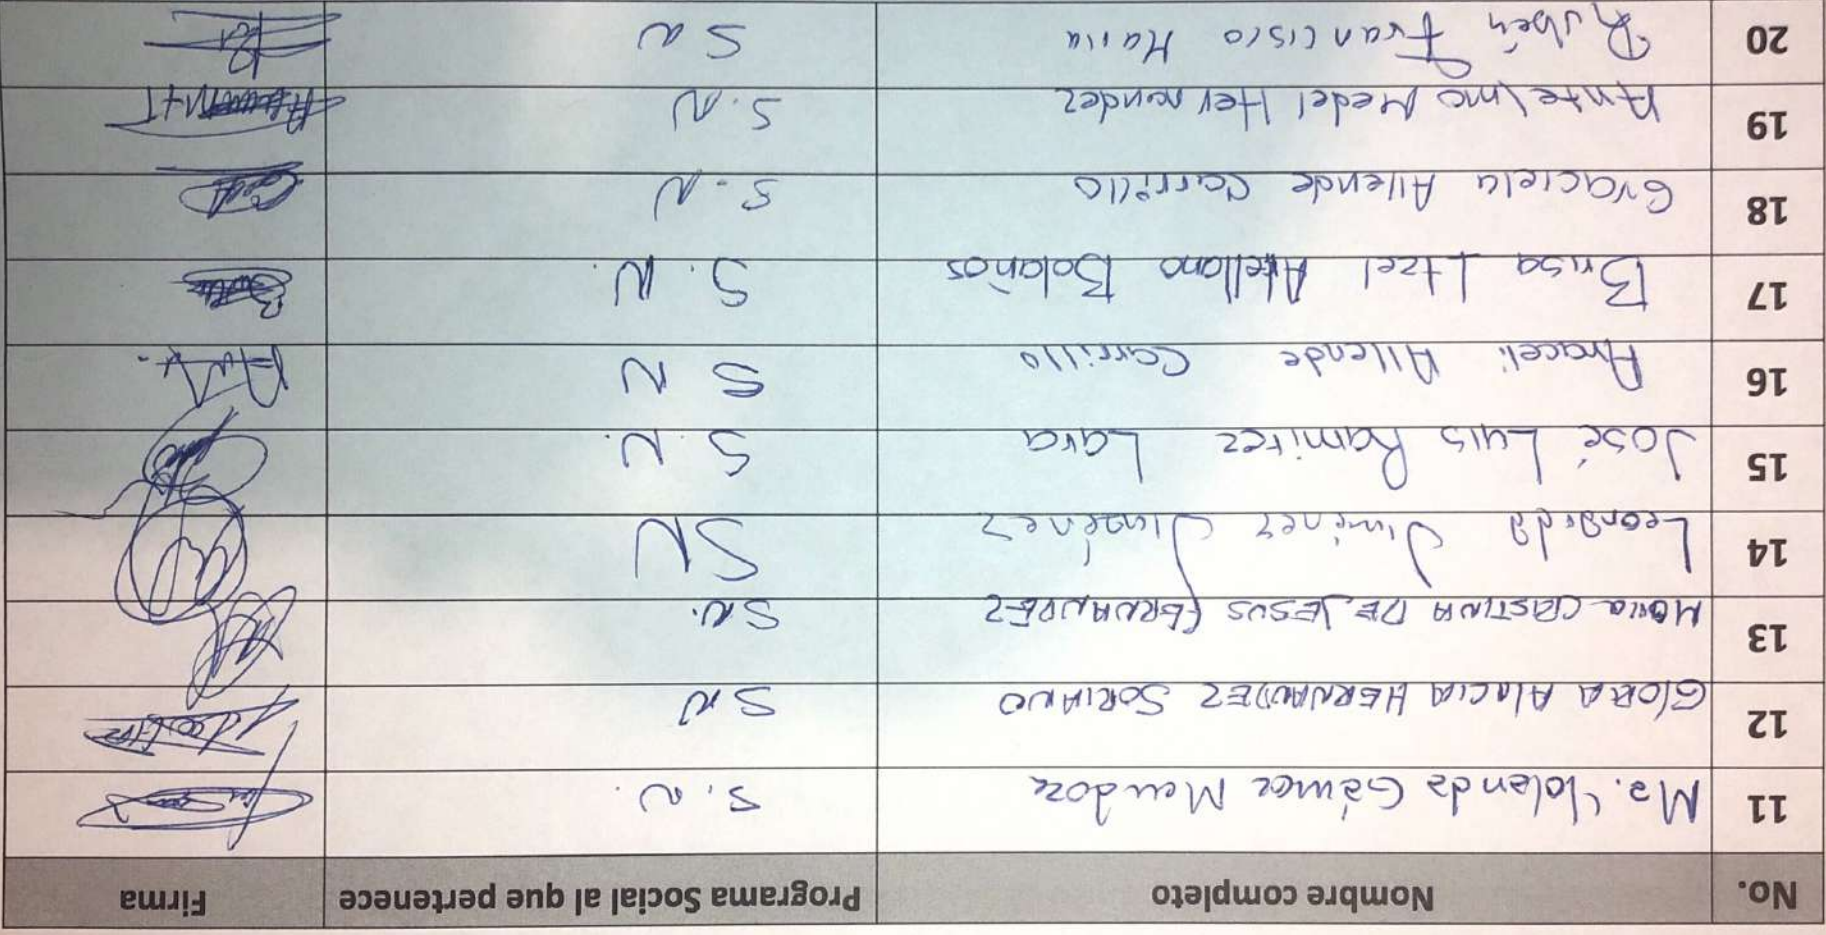 No. Nombre completo Programa Social al que pertenece Firma
11 Ma. Yolanda Gámez Mendoza S.N.
12 Gloria Alicia HERNANDEZ SORIANO SN
13 Maria CRISTINA DE JESUS FERNANDEZ SN.
14 Leonida Jiménez Jiménez SN
15 José Luis Ramirez Lara S.N.
16 Araceli Allende Carrillo S N
17 Brisa Itzel Arellano Bolaños S.N.
18 Graciela Allende Carrillo S.N
19 Antelmo Medel Hernandez S.N
20 Rubén Francisco Maria S N